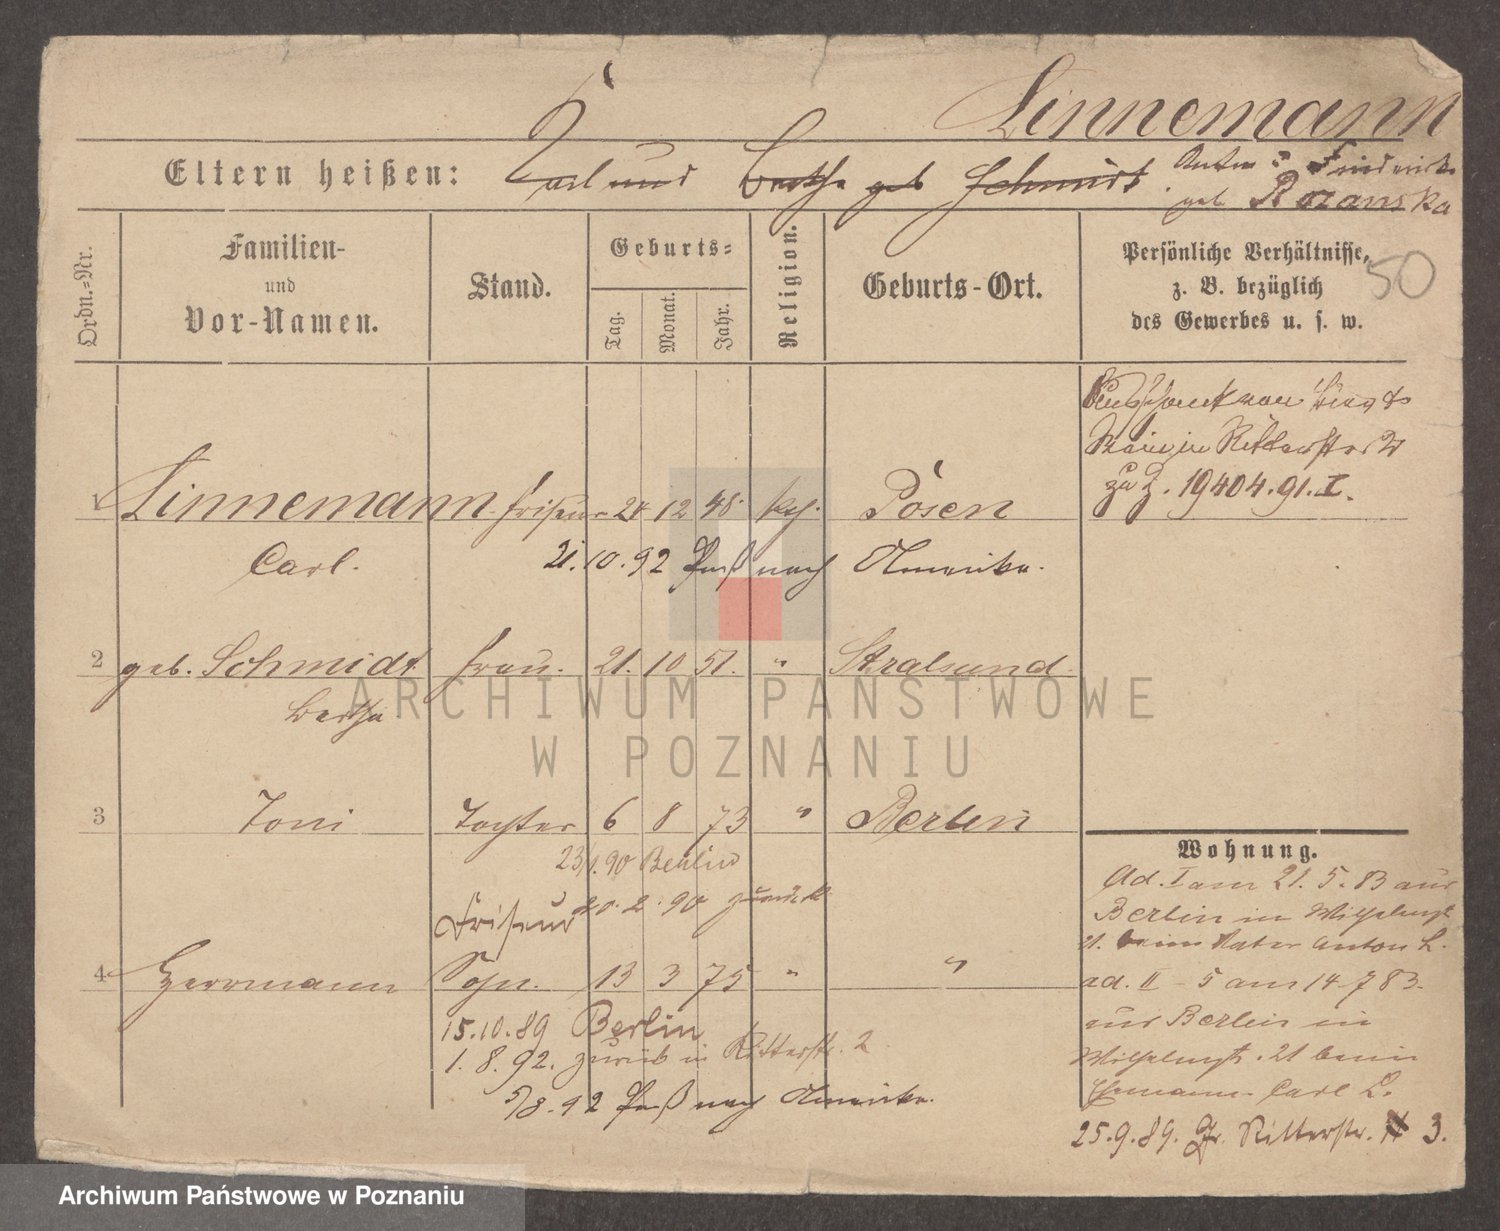 Linnemann
Eltern heißen: Carl und Bertha geb Schmidt Anton u Friederike
geb Rozanska
Ordn.-Nr.
Familien-
und
Vor-Namen.
Stand.
Geburts-
Tag.
Monat.
Jahr.
Religion.
Geburts-Ort.
Persönliche Verhältnisse,
z. B. bezüglich
des Gewerbes u. s. w.
50
Ausschank von
Wein in Ritterstr 2
zu Z. 19404.91.I.
1 Linnemann Friseur 24 12 48. kth. Posen
Carl.
21.10.92 Paß nach Amerika.
2 geb. Schmidt Frau. 21. 10 51. " Stralsund
Bertha
3 Toni Tochter 6 8 73 " Berlin
23/1.90 Berlin
20.2.90 zurück
Friseur
4 Herrmann Sohn. 13 3 75 " "
15.10.89 Berlin
1.8.92. zurück in Ritterstr. 2
5/8.92 Paß nach Amerika.
Wohnung.
Ad. I am 21.5.83 aus
Berlin in Wilhelmspl.
21. beim Vater Anton L.
ad. II - 5 am 14 7 83.
aus Berlin in
Wilhelmspl. 21 beim
Ehemann Carl L.
25.9.89. Gr. Ritterstr. 3.
ARCHIWUM PAŃSTWOWE
W POZNANIU
Archiwum Państwowe w Poznaniu